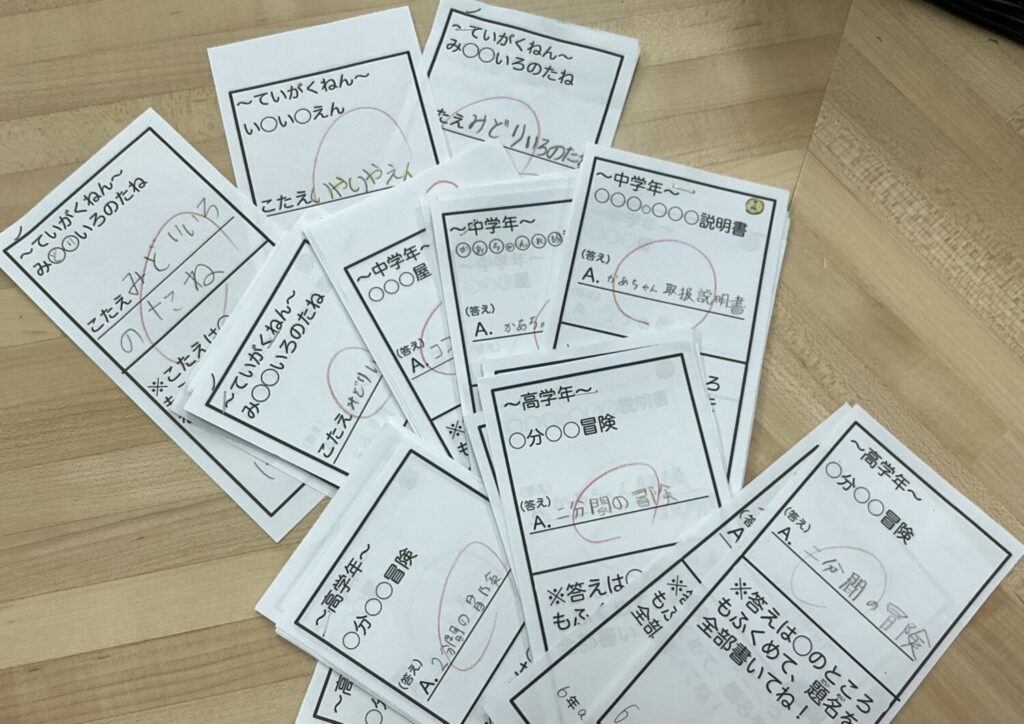 ～ていがくねん～
い○い○えん
こたえいやいやえん
～ていがくねん～
み○○いろのたね
たえみどりいろのたね
～ていがくねん～
みどりいろのたね
こたえみどりいろ
のたね
※こたえは○
～ていがくねん～
み○○いろのたね
こたえみどりい
～中学年～
○○○屋
(答え)
A.ココ
～中学年～
かあちゃん取扱
(答え)
A.かあち
～中学年～
○○○。○○○説明書
(答え)
A.かあちゃん取扱説明書
～高学年～
○分○○冒険
(答え)
A.二分間の冒険
※答えは○
もふくめ
～高学年～
○分○○冒険
(答え)
A.2分間の冒険
～高学年～
○分○○冒険
(答え)
A.二分間の冒険
※答えは○のところ
もふくめて、題名を
全部書いてね！
A.
※答え
もふ
全部
6年
6
～高